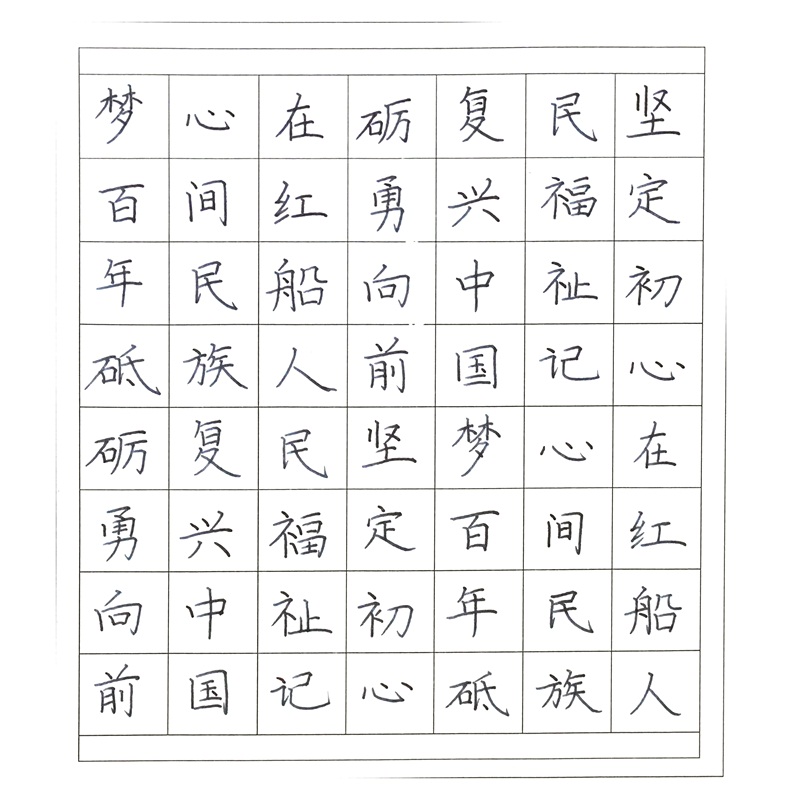 梦心在砺复民坚
百间红勇兴福定
年民船向中祉初
砥族人前国记心
砺复民坚梦心在
勇兴福定百间红
向中祉初年民船
前国记心砥族人